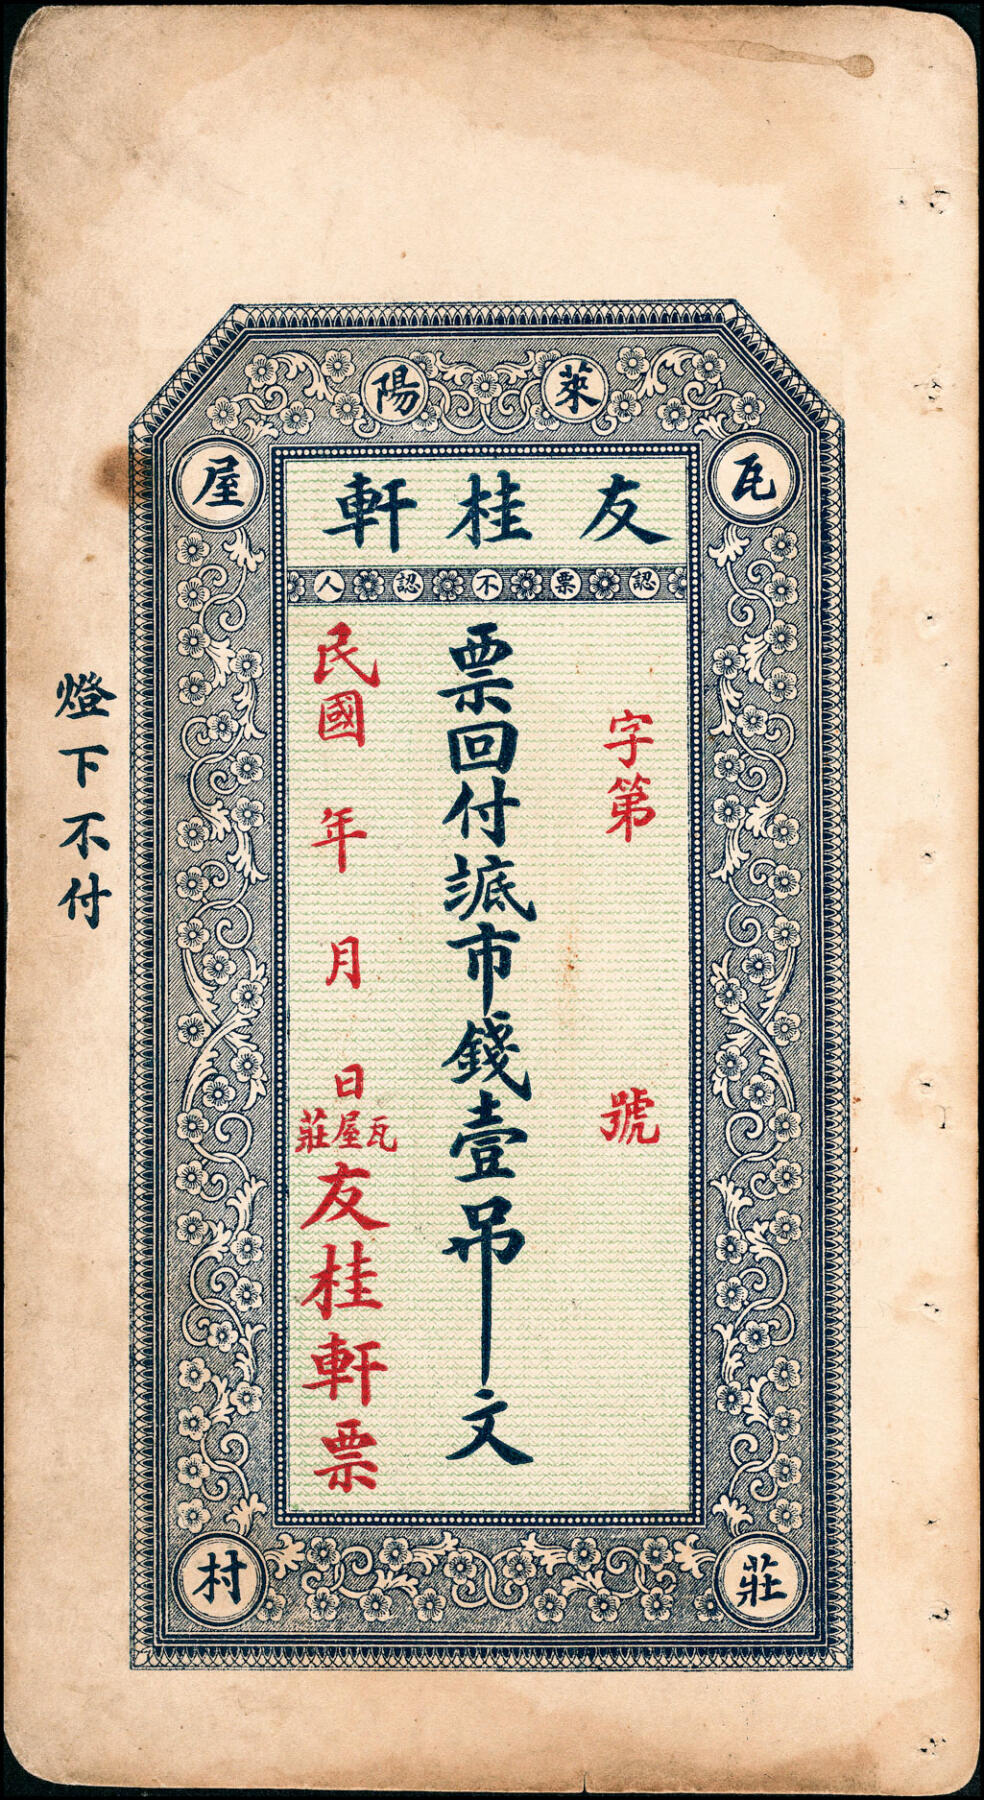 萊陽
瓦屋
莊村
友桂軒
認票不認人
字第 號
票回付㡳市錢壹吊文
民國 年 月 日
瓦屋莊
友桂軒票
燈下不付